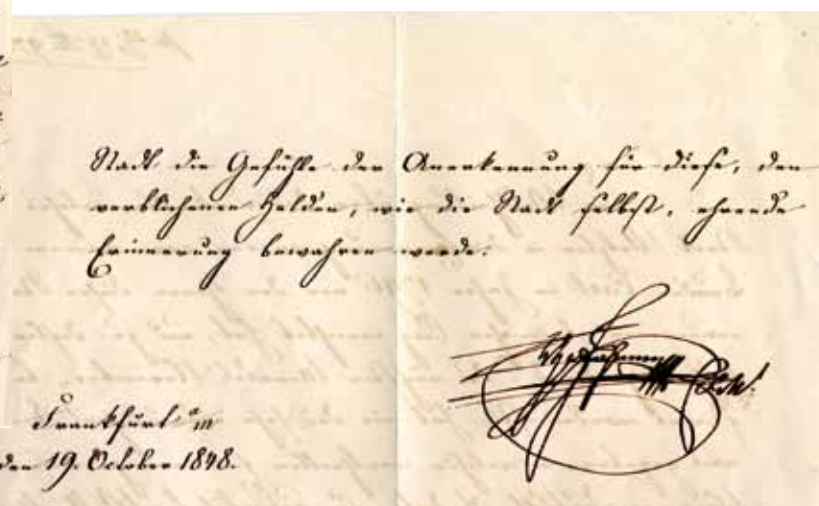 Stadt die Gefühle der Anerkennung für diese, den
verblichenen Helden, wie die Stadt selbst, ehrende
Erinnerung bewahren werde.
Frankfurt a/m
den 19. October 1848.